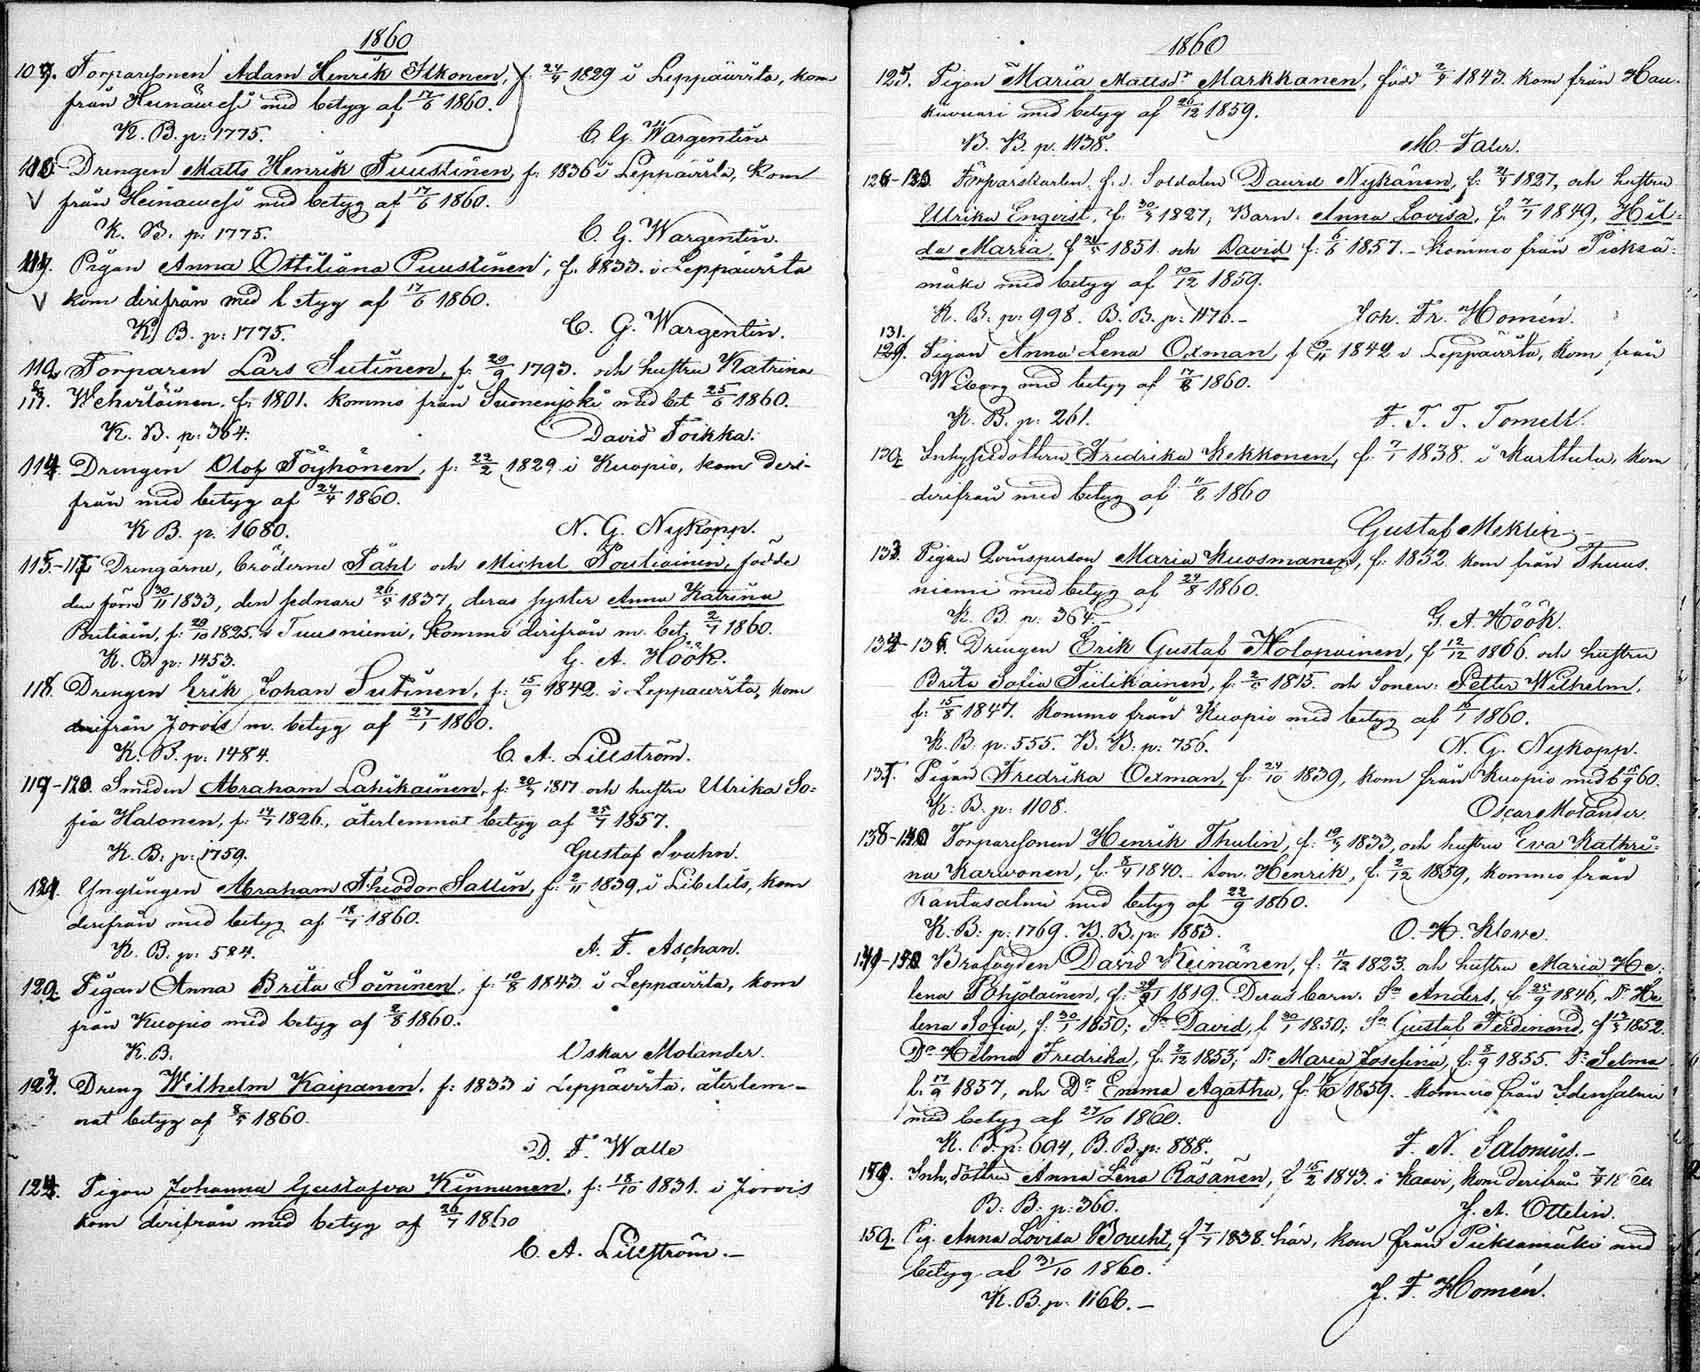 1860
109. Torparesonen Adam Henrik Ikonen, f. 24/4 1829 i Leppävirta, kom
från Heinäwesi med betyg af 17/6 1860.
K. B. p: 1775. C. G. Wargentin
110. Drengen Matts Henrik Puustinen, f. 1836 i Leppävirta, kom
V från Heinäwesi med betyg af 17/6 1860.
K. B. p: 1775. C. G. Wargentin.
111. Pigan Anna Ottiliana Puustinen, f. 1833 i Leppävirta
V kom derifrån med betyg af 17/6 1860.
K. B. p: 1775. C. G. Wargentin.
112 Torparen Lars Sutinen, f. 29/9 1793. och hustru Katrina
113. Wehviläinen. f. 1801. kommo från Suonenjoki med bet 25/6 1860.
K. B. p: 364. David Toikka.
114. Drengen Olof Töyhönen, f. 22/2 1829 i Kuopio, kom deri-
från med betyg af 24/4 1860.
K B. p. 1680. N. G. Nykopp.
115.-117 Drengarne, bröderne Påhl och Michel Poutiainen, födde
den förre 30/11 1833, den sednare 26/5 1837, deras syster Anna Katrina
f: 29/10 1825. i Tuusniemi, kommo derifrån m. bet. 2/7 1860.
K. B. p: 1453. G. A. Höök.
118. Drengen Erik Johan Sutinen, f: 15/9 1842. i Leppävirta, kom
från Jorois m. betyg af 27/1 1860.
K. B. p: 1484. C. A. Lillström.
119-120. Smeden Abraham Lahikainen, f: 1817 och hustru Ulrika So-
fia Halonen, f: 1826, återlemnat betyg af 25/7 1857.
K. B. p: 1759. Gustaf Svahn.
121. Ynglingen Abraham Theodor Sallin, f: 2/11 1839, i Libelits, kom
derifrån med betyg af 1860.
K. B. p: 584. A. F. Aschan.
122 Pigan Anna Brita Soininen, f: 10/8 1843 i Leppävirta, kom
från Kuopio med betyg af 2/8 1860.
K. B. Oskar Molander.
123. Dreng Wilhelm Kaipanen, f: 1833 i Leppävirta, återlem-
nat betyg af 1860.
D. F. Walle
124. Pigan Johanna Gustafva Kinnunen, f: 18/10 1831. i Jorois
kom derifrån med betyg af 26/7 1860
C. A. Lillström.-
1860
125. Pigan Maria Mattsdr Markkanen, född 2/4 1843. kom från Hau-
kivuori med betyg af 26/12 1859.
B. B. p. 1138. M. Faler.
126-130 f. d. Soldaten David Nykänen, f: 1827, och hustru
Ulrika Enqvist, f: 1827, Barn: Anna Lovisa, f. 1849, Hil-
da Maria, f 1851 och David f. 1857.- Kommo från Pieksä-
mäki med betyg af 10/12 1859.
K. B. p: 998. B. B. p: 1176.- Joh. Fr. Homén.
131.
129. Pigan Anna Lena Oxman, f 1842 i Leppävirta, kom från
Wiborg med betyg af 17/8 1860.
K. B. p: 261. F. T. T. Tomell.
132 Inhysesdottren Fredrika Kekkonen, f. 7/1 1838. i Karttula, kom
derifrån med betyg af 11/8 1860
Gustaf Meklin
133 Pigan Qvinsperson Maria Kuosmanen, f: 1832 kom från Thuus-
niemi med betyg af 24/8 1860.
K. B. p: 364.- G. A. Höök.
134-136. Drengen Erik Gustaf Holopainen, f 12/12 1806. och hustru
Brita Sofia Tiilikainen, f: 1815. och Sonen: Petter Wilhelm,
f: 15/8 1847. kommo från Kuopio med betyg af 1860.
K. B. p: 555. B. B. p: 756. N. G. Nykopp.
137. Pigan Fredrika Oxman, f: 24/10 1839, kom från Kuopio med b 60.
K. B. p: 1108. Oscar Molander.
138-140 Torparesonen Henrik Thulin, f: 1833, och hustru Eva Kathri-
na Karwonen, f. 1840. Son Henrik, f. 2/12 1859, kommo från
Rantasalmi med betyg af 22/9 1860.
K. B. p: 1769. B. B. p: 1883. O. H. Klewe.
David Keinänen, f: 1823. och hustru Maria He-
lena Pohjolainen, f: 1819. Deras barn. Sn Anders, f 25/9 1846, Dr He-
lena Sofia, f: 30/1 1850; Sn David, f 30/1 1850; Sn Gustaf Ferdinand, f 1852.
Dr Hilma Fredrika, f. 2/12 1853, Dr Maria Josefina, f: 8/9 1855. Dr Selma
f. 17/9 1857, och Dr Emma Agatha, f. 1859. Kommo från Idensalmi
med betyg af 27/10 1860.
K. B. p: 694, B. B. p: 888. F. N. Salonius.-
Inh. dottren Anna Lena Räsänen, f 15/2 1843. i Kaavi, kom derifrån
B. B. p: 360. J. A. Ottelin.
Pig. Anna Lovisa Boucht, f 7/7 1838. här, kom från Pieksämäki med
betyg af 31/10 1860.
K. B. p. 1166.- J. F. Homén.